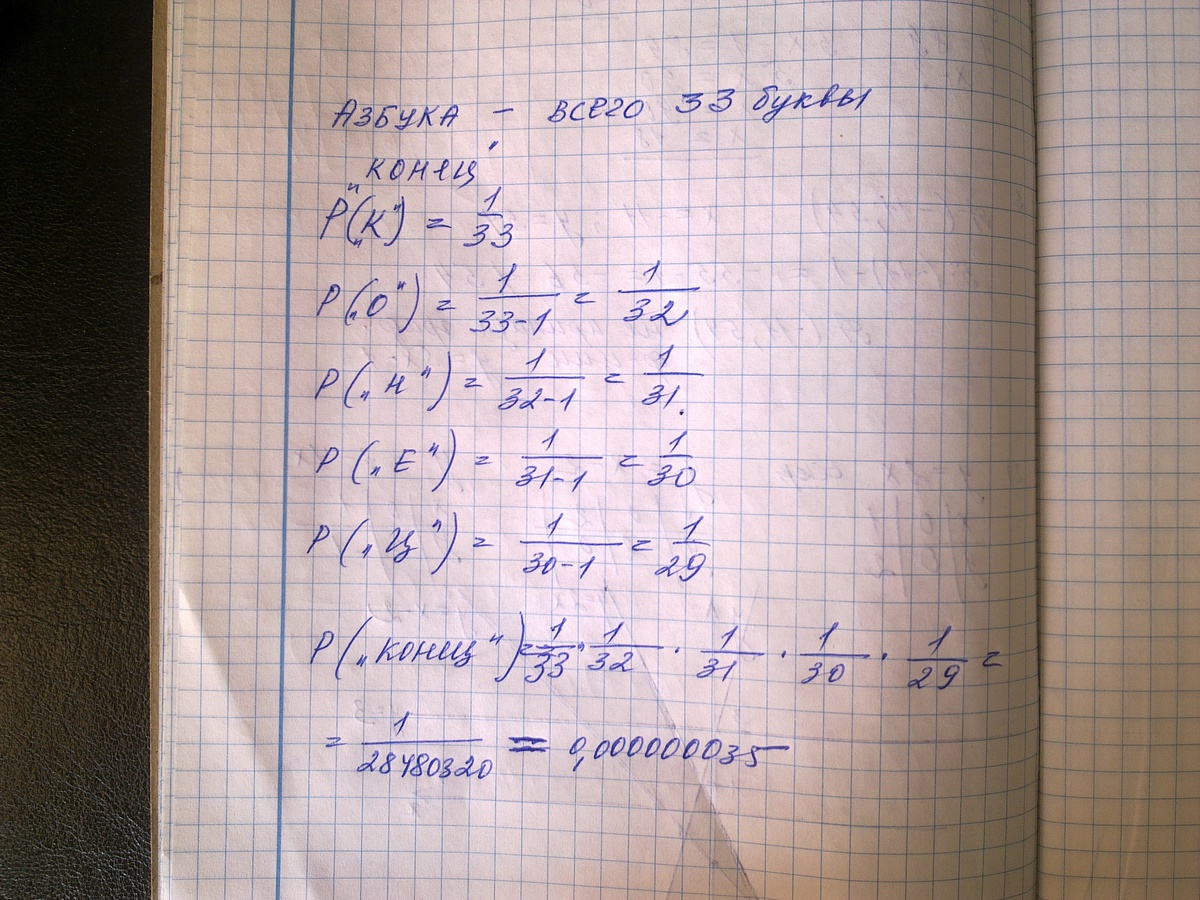 АЗБУКА — ВСЕГО 33 буквы
„конец"
P(„К") = 1/33
P(„О") = 1/33-1 = 1/32
P(„Н") = 1/32-1 = 1/31.
P(„Е") = 1/31-1 = 1/30
P(„Ц") = 1/30-1 = 1/29
P(„конец") = 1/33 · 1/32 · 1/31 · 1/30 · 1/29 =
= 1/28480320 = 0,000000035